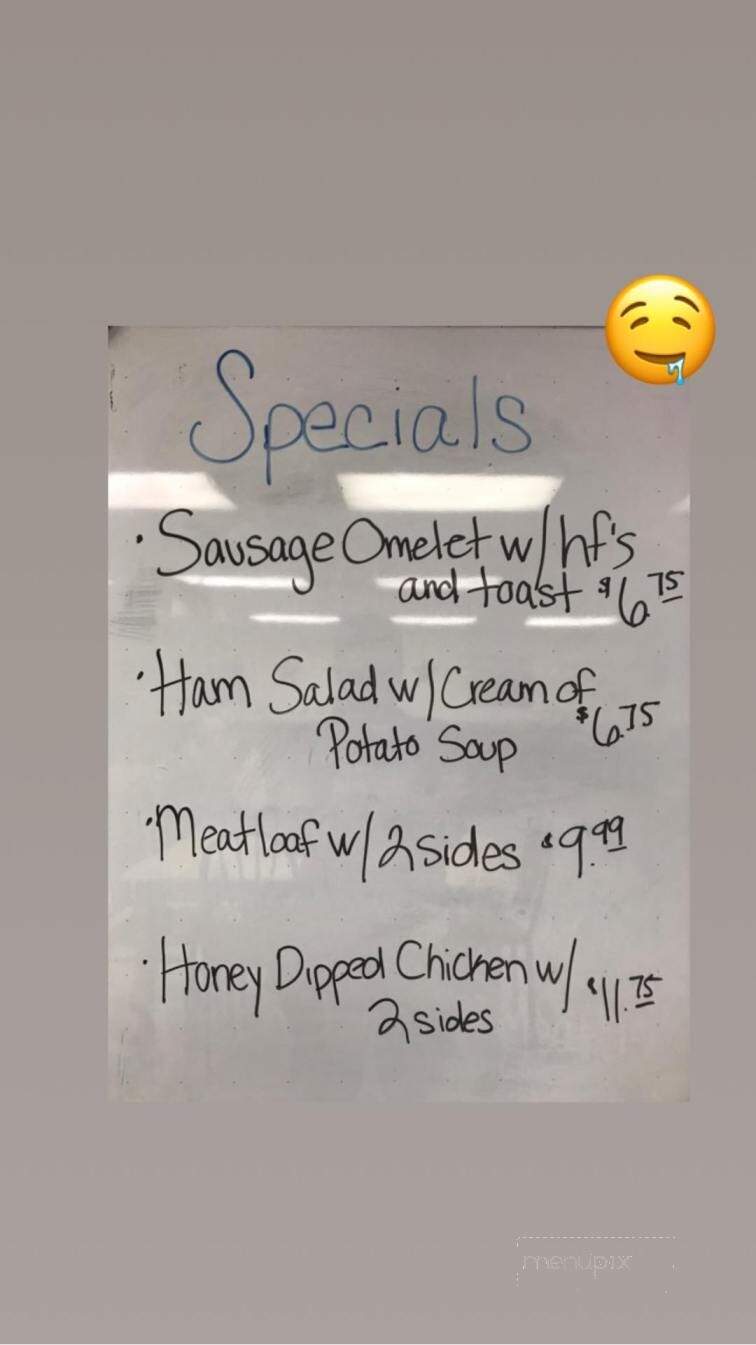 Specials
· Sausage Omelet w/hf's
and toast $6.75
· Ham Salad w/Cream of
Potato Soup $6.75
· Meatloaf w/2 sides $9.99
· Honey Dipped Chicken w/
2 sides $11.75
menupix